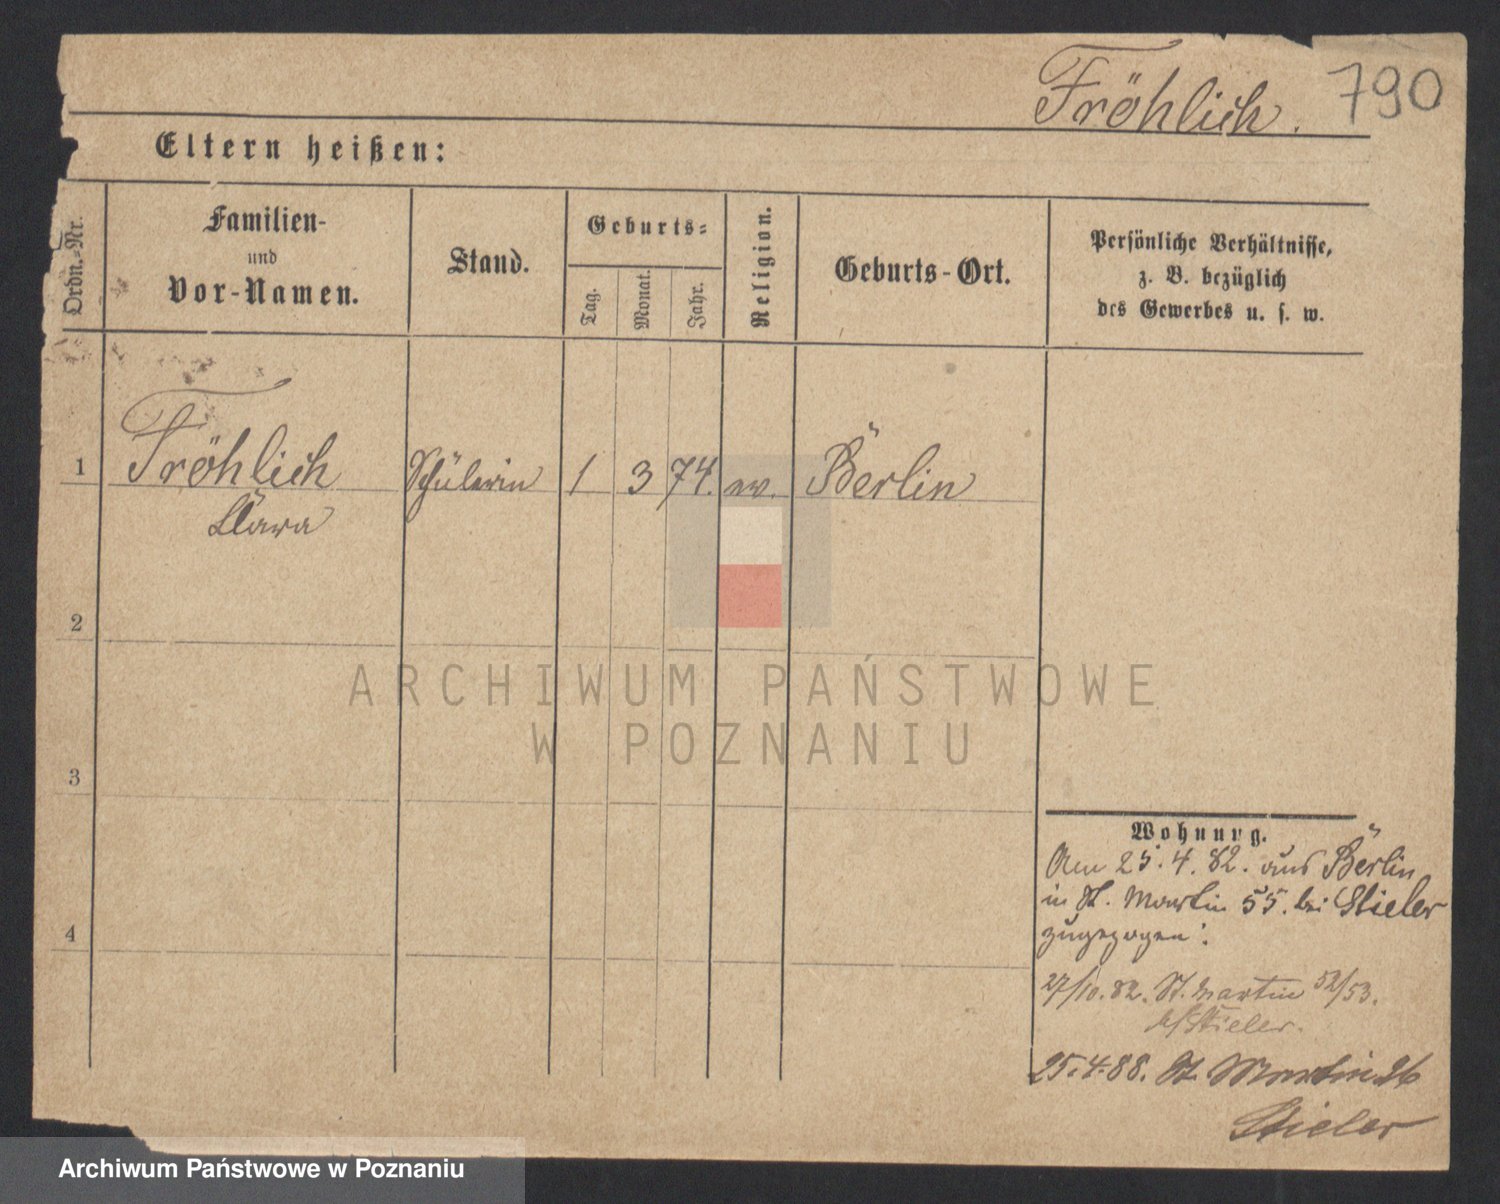 Fröhlich. 790
Eltern heißen:
Ordn.-Nr.
Familien-
und
Vor-Namen.
Stand.
Geburts-
Tag.
Monat.
Jahr.
Religion.
Geburts-Ort.
Persönliche Verhältnisse,
z. B. bezüglich
des Gewerbes u. s. w.
1 Fröhlich Schülerin 1 3 74. ev. Berlin
Clara
2
3
4
Wohnung.
Am 25. 4. 82. aus Berlin
in St. Martin 55. bei Stieler
zugezogen.
27/10. 82. St. Martin 52/53.
b/Stieler.
25.4.88. St. Martin 26
Stieler
ARCHIWUM PAŃSTWOWE
W POZNANIU
Archiwum Państwowe w Poznaniu